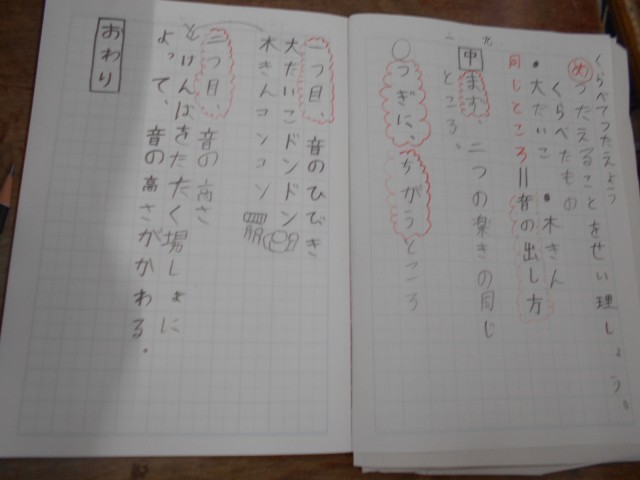 くらべてつたえよう
め つたえることをせい理しょう。
くらべたもの
・大だいこ ・木きん
同じところ＝音の出し方
中 まず、二つの楽きの同じ
ところ、
○つぎに、ちがうところ
一つ目、音のひびき
大だいこドンドン
木きんコンコン
二つ目、音の高さ
けんばをたたく場しょに
よって、音の高さがかわる。
おわり